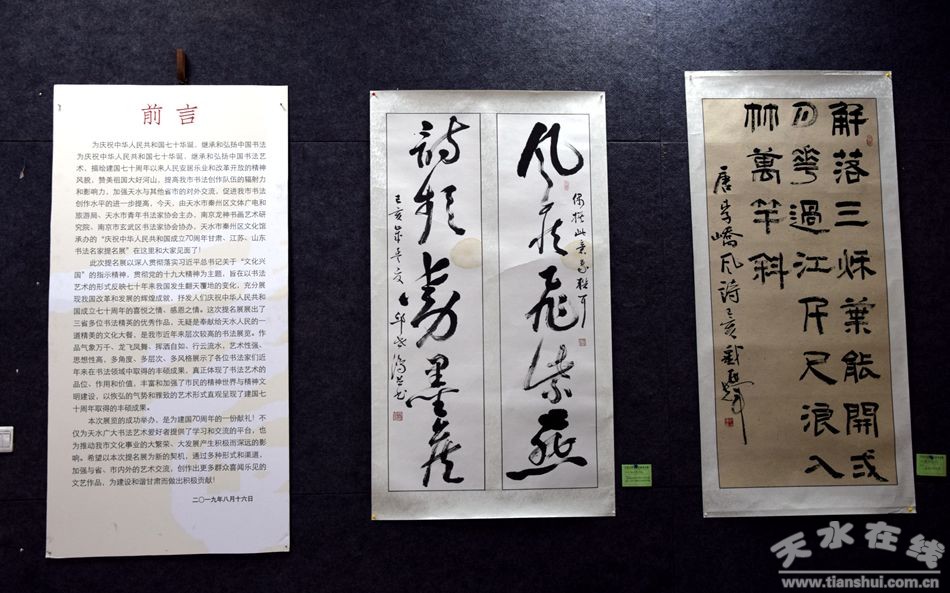 前言
为庆祝中华人民共和国七十华诞，继承和弘扬中国书法
为庆祝中华人民共和国七十华诞，继承和弘扬中国书法艺
术，描绘建国七十周年以来人民安居乐业和改革开放的精神
风貌，赞美祖国大好河山，提高我市书法创作队伍的辐射力
和影响力，加强天水与其他省市的对外交流，促进我市书法
创作水平的进一步提高，今天，由天水市秦州区文体广电和
旅游局、天水市青年书法家协会主办，南京龙神书画艺术研
究院、南京市玄武区书法家协会、天水市秦州区文化馆
承办的“庆祝中华人民共和国成立70周年甘肃、江苏、山东
书法名家提名展”在这里和大家见面了！
此次提名展以深入贯彻落实习近平总书记关于“文化兴
国”的指示精神，贯彻党的十九大精神为主题，旨在以书法
艺术的形式反映七十年来我国发生翻天覆地的变化，充分展
现我国改革和发展的辉煌成就，抒发人们庆祝中华人民共和
国成立七十周年的喜悦之情、感恩之情。这次提名展展出了
三省多位书法精英的优秀作品，无疑是奉献给天水人民的一
道精美的文化大餐，是我市近年来层次较高的书法展览。作
品气象万千、龙飞凤舞、挥洒自如、行云流水，艺术性强、
思想性高，多角度、多层次、多风格展示了各位书法家们近
年来在书法领域中取得的丰硕成果，真正体现了书法艺术的
品位、作用和价值，丰富和加强了市民的精神世界与精神文
明建设，以恢弘的气势和雅致的艺术形式直观呈现了建国七
十周年取得的丰硕成果。
本次展览的成功举办，是为建国70周年的一份献礼！不
仅为天水广大书法艺术爱好者提供了学习和交流的平台，也
为推动我市文化事业的大繁荣、大发展产生积极而深远的影
响。希望以本次提名展为新的契机，通过多种形式和渠道，
加强与省、市内外的艺术交流，创作出更多群众喜闻乐见的
文艺作品，为建设和谐甘肃而做出积极贡献！
二〇一九年八月十六日
飛紫燕
詩
墨
解落三秌葉能開弍
月花過江仟尺浪入
林萬竿斜
唐李嶠風詩
天水在线
www.tianshui.com.cn